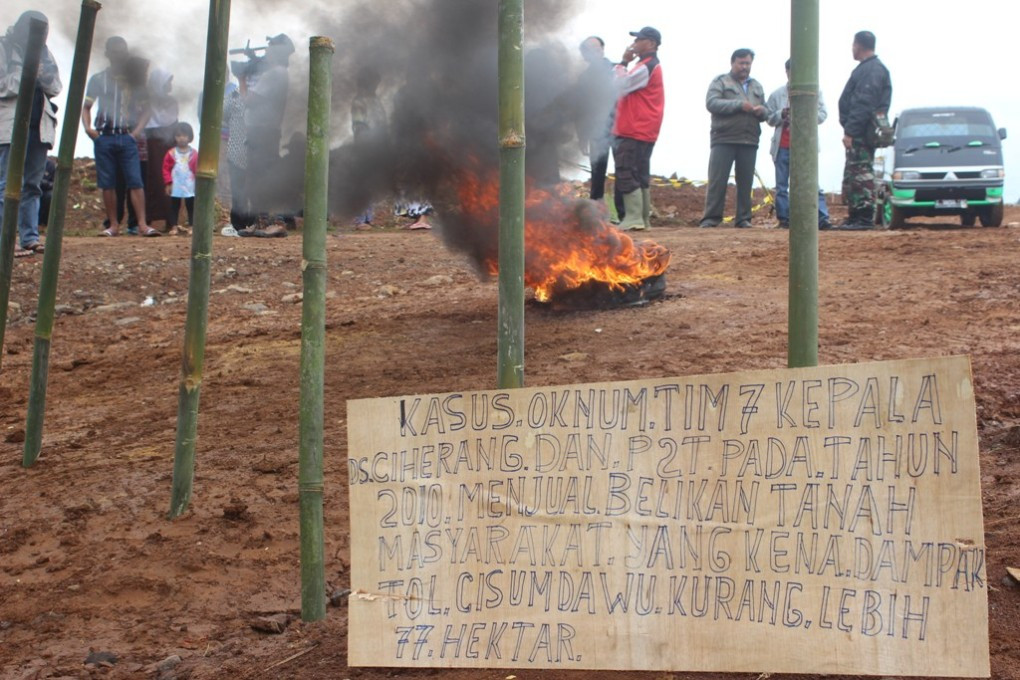 KASUS. OKNUM. TIM 7 KEPALA
DS. CIHERANG. DAN. P2T. PADA. TAHUN
2010. MENJUAL. BELIKAN TANAH
MASYARAKAT. YANG KENA. DAMPAK
TOL. CISUMDAWU. KURANG. LEBIH
77. HEKTAR.